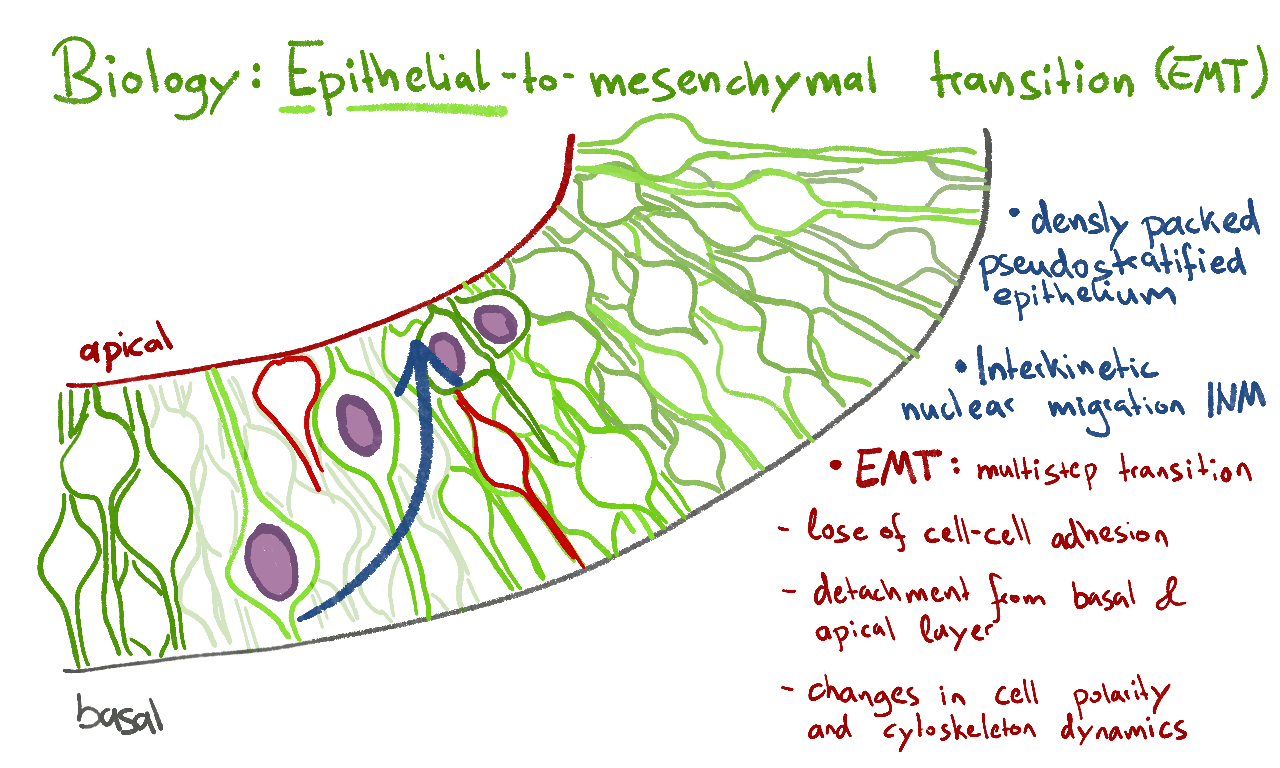 Biology: Epithelial-to-mesenchymal transition (EMT)
• densly packed
pseudostratified
epithelium
apical
• Interkinetic
nuclear migration INM
• EMT: multistep transition
- lose of cell-cell adhesion
- detachment from basal &
apical layer
- changes in cell polarity
and cyloskeleton dynamics
basal